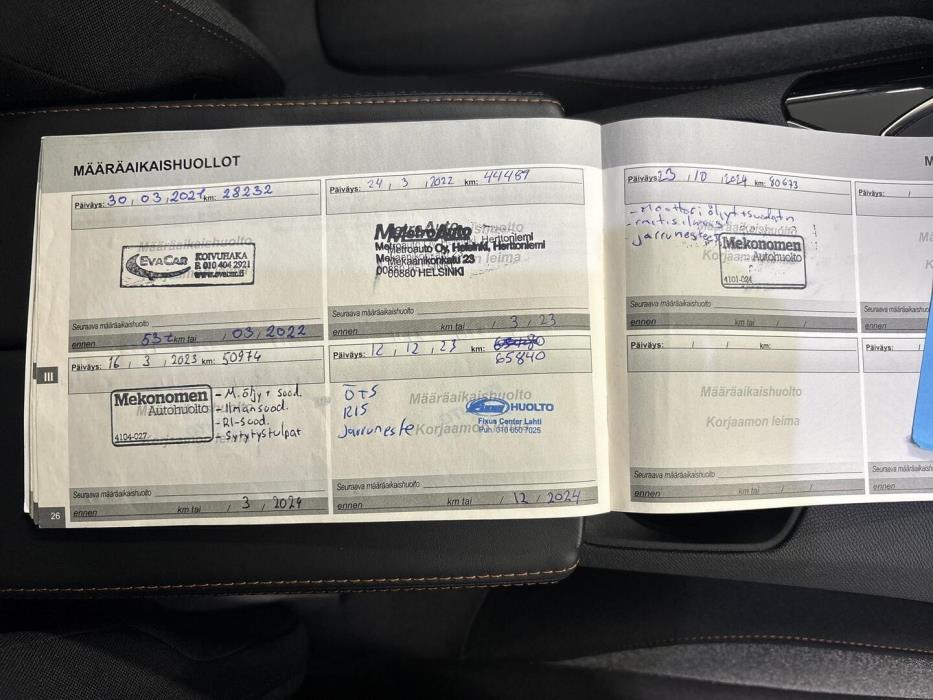 MÄÄRÄAIKAISHUOLLOT
Päiväys: 30 , 03 , 2021 km: 28232
Määräaikaishuolto
EVACAR
KOIVUHAKA
P. 010 404 2921
www.evacar.fi
Seuraava määräaikaishuolto
ennen 53 t km tai / 03 , 2022
Päiväys: 24 , 3 , 2022 km: 44489
MetroAuto
Metroauto Oy, Helsinki, Herttoniemi
Mekaanikonkatu 23
00880 HELSINKI
Korjaamon leima
Seuraava määräaikaishuolto
ennen km tai / 3 , 23
Päiväys: 16 , 3 , 2023 km: 50974
Mekonomen
Autohuolto
4104-027
- M.öljy + suod.
- Ilmansuod.
- RI-suod.
- Sytytystulpat
Seuraava määräaikaishuolto
ennen km tai / 3 , 2024
Päiväys: 12 , 12 , 23 km:
65840
Määräaikaishuolto
ÖTS
RIS
Jarruneste
HUOLTO
Fixus Center Lahti
Puh. 010 850 7025
Korjaamon leima
Seuraava määräaikaishuolto
ennen km tai / 12 / 2024
III
26
Päiväys: 23 , 10 , 2024 km: 80673
- Moottoriöljyt + suodatin
jarruneste
Mekonomen
Autohuolto
4101-024
Korjaamon
Seuraava määräaikaishuolto
ennen km tai / /
Päiväys: / / km:
Määräaikaishuolto
Korjaamon leima
Seuraava määräaikaishuolto
ennen km tai / /
M
Päiväys: /
Määrä
Korja
Seuraava määräaikaishuolto
ennen
Päiväys: /
Seuraava määräaikaishu
ennen